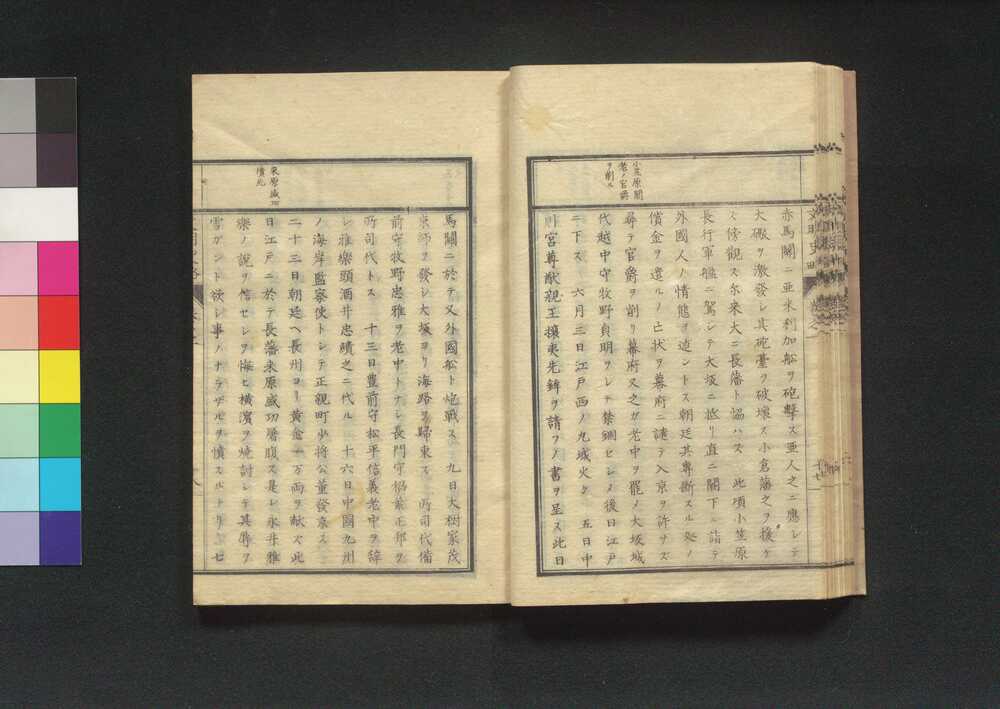 小笠原閣
老ノ官爵
ヲ削ル
赤馬關ニ亜米利加船ヲ砲擊ス亜人之ニ應シテ
大礮ヲ激發シ其砲臺ヲ破壞ス小倉藩之ヲ援ケ
ス傍觀ス尓来大ニ長藩ト協ハス 此頃小笠原
長行軍艦ニ駕シテ大坂ニ抵リ直ニ闕下ニ詣テ
外國人ノ情態ヲ述ントス朝廷其專斷スル処ノ
償金ヲ遣ルノ亡状ヲ幕府ニ譴テ入京ヲ許サス
尋テ官爵ヲ削リ幕府又之ガ老中ヲ罷メ大坂城
代越中守牧野貞明ヲシテ禁錮セシメ後日江戸
ニ下ス 六月三日江戸西ノ九城火ケ 五日中
川宮尊猷親王攘夷先鉾ヲ請フノ書ヲ呈ス此日
馬關ニ於テ又外國船ト炮戰ス 九日大樹家茂
京師ヲ發シ大坂ヨリ海路ヲ歸東ス 所司代備
前守牧野忠雅ヲ老中トナシ長門守稲葉正邦ヲ
所司代トス 十三日豊前守松平信義老中ヲ辞
シ雅樂頭酒井忠績之ニ代ル 十六日中國九州
ノ海岸監察使トシテ正親町少將公董發京ス
二十三日朝廷ヘ長州ヨリ黄金一万両ヲ献ス此
日江戸ニ於テ長藩来原盛功屠腹ス是レ永井雅
樂ノ說ヲ信セシヲ悔ヒ横濱ヲ焼討シテ其辱ヲ
雪ガント欲シ事ノナラザルヲ憤スルトリ 七
来原盛功
憤死